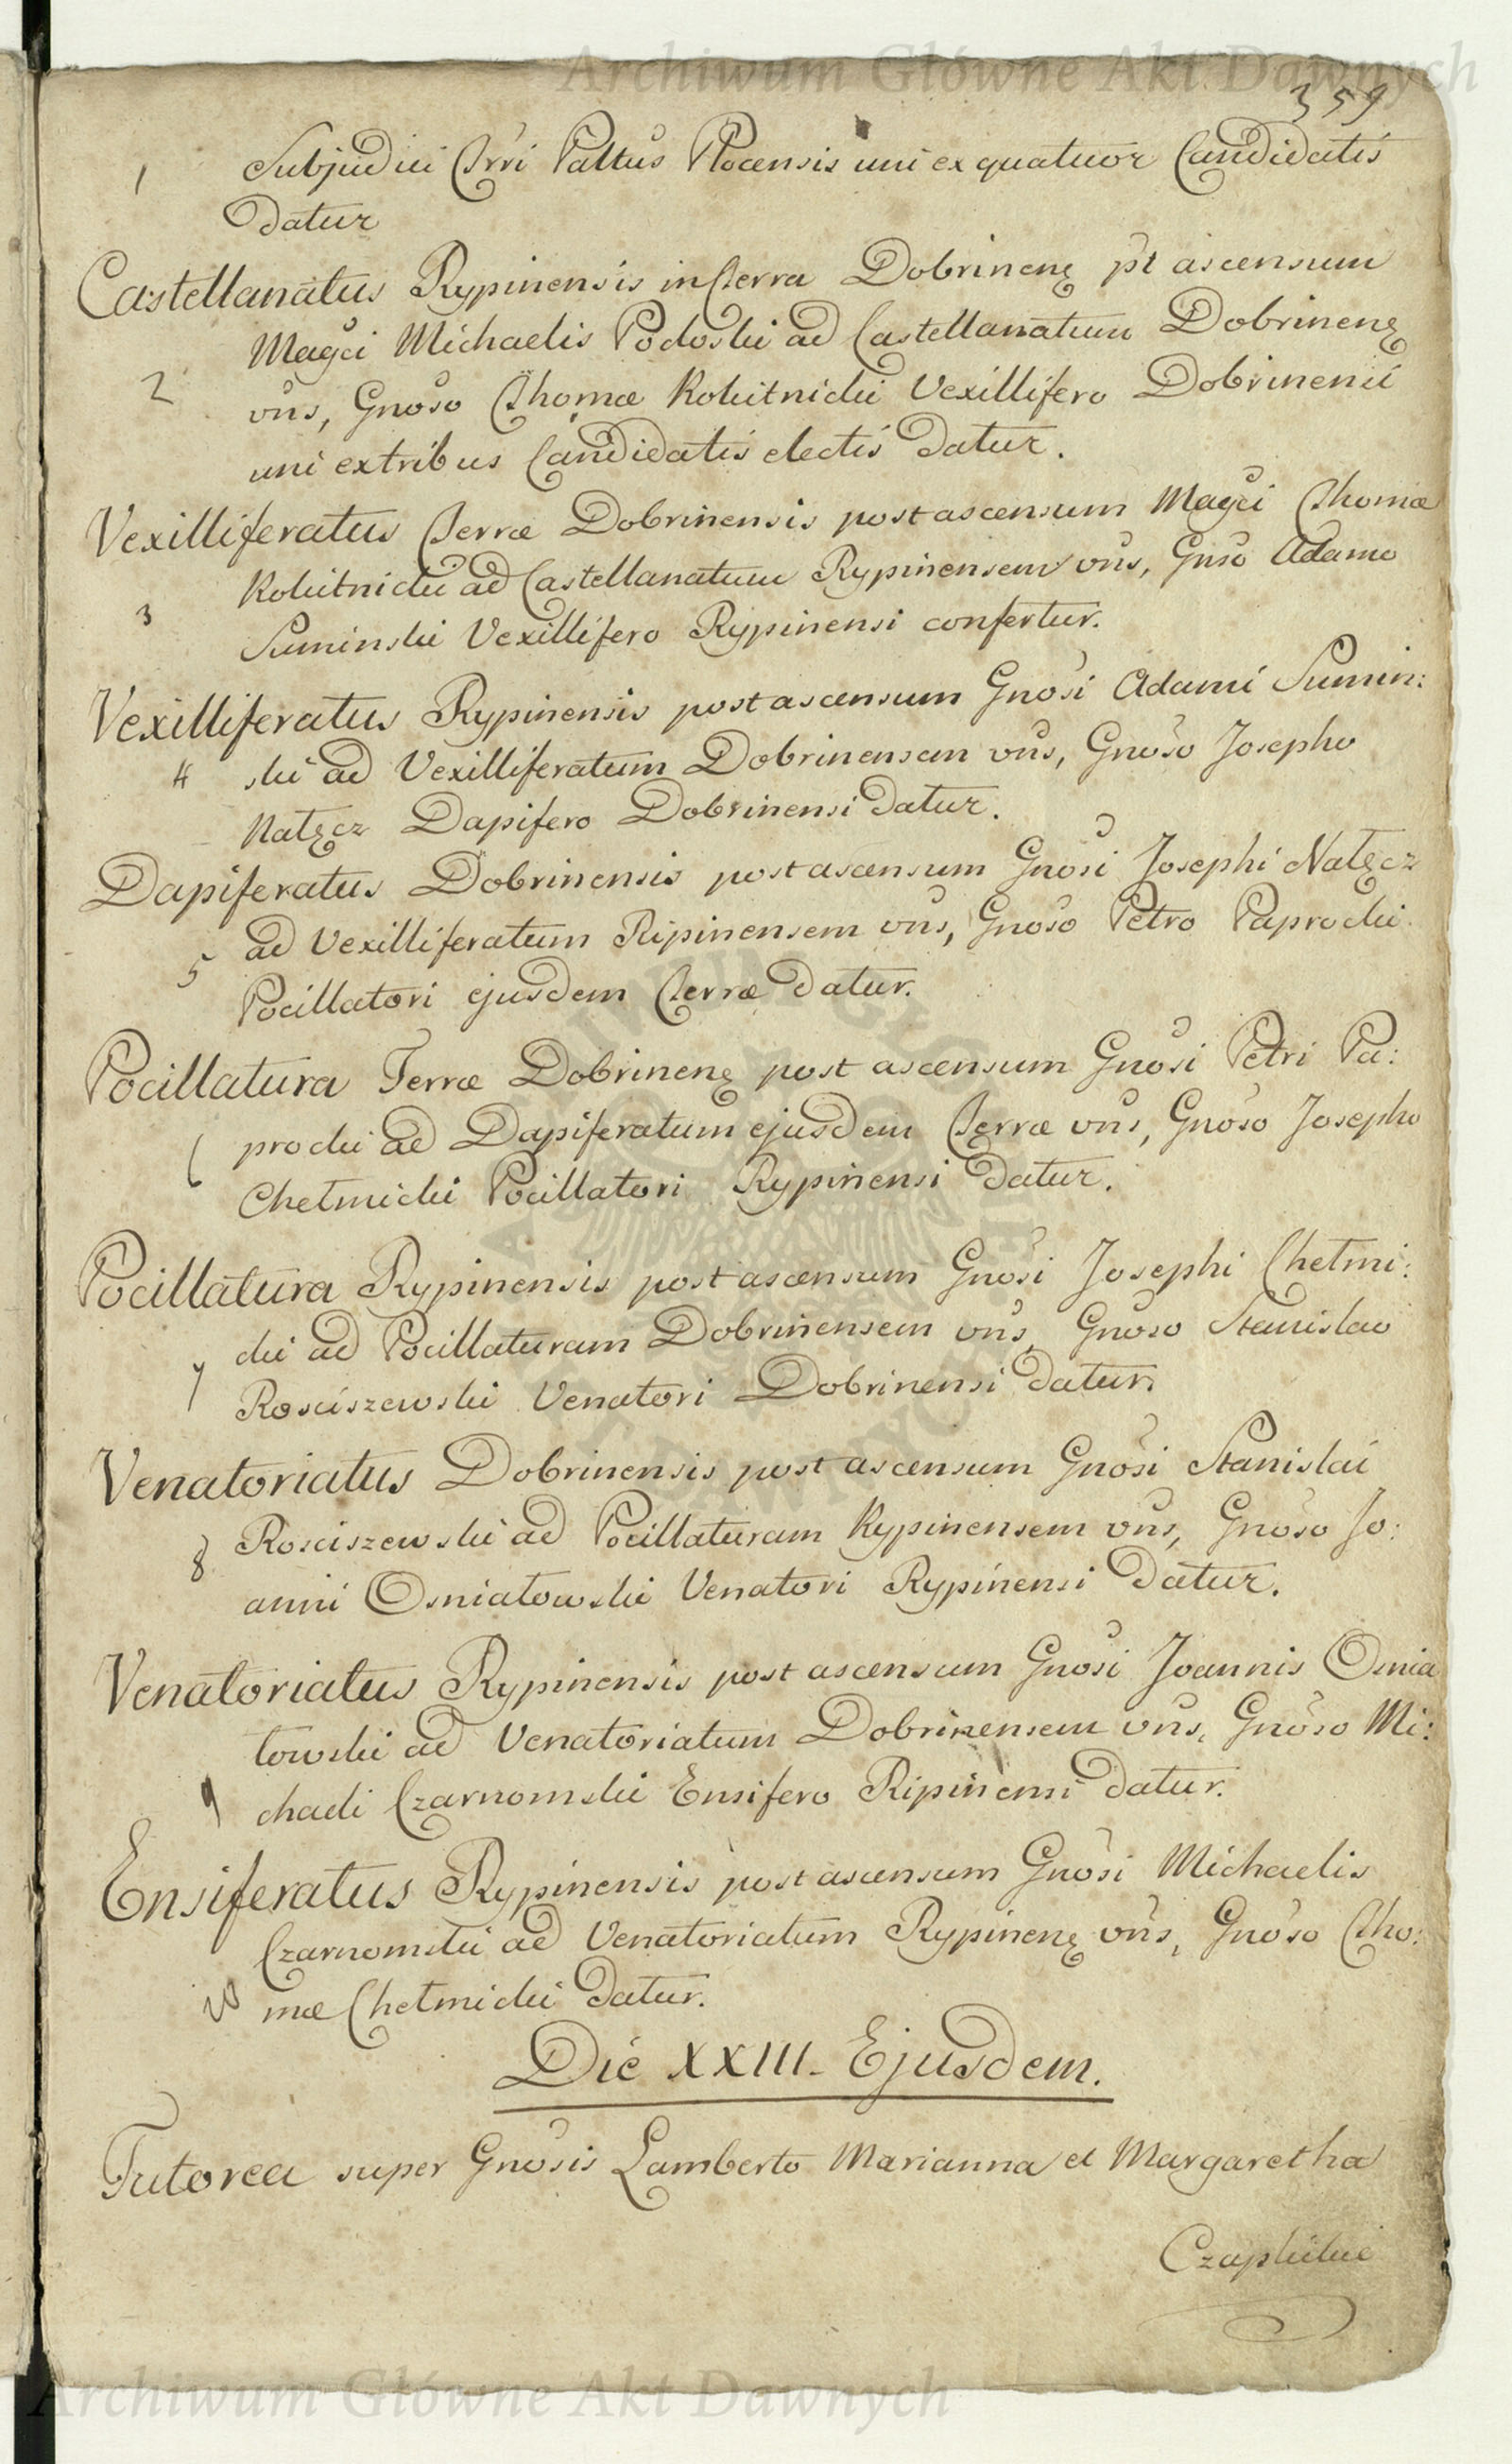 Archiwum Główne Akt Dawnych
359
1 Subjudici Trri Pattus Plocensis uni ex quatuor Candidatis
datur
Castellanatus Rypinensis in Terra Dobrinenę pt ascensum
Magci Michaelis Podoski ad Castellanatum Dobrinenę
2 vris, Gnoso Thomæ Rokitnicki Vexillifero Dobrinensi
uni ex tribus Candidatis electis datur.
Vexilliferatus Terræ Dobrinensis post ascensum Magci Thomæ
Rokitnicki ad Castellanatum Rypinensem vris, Gnso Adamo
3 Suminski Vexillifero Rypinensi confertur.
Vexilliferatus Rypinensis post ascensum Gnosi Adami Sumin:
4 ski ad Vexilliferatum Dobrinensem vris, Gnoso Josepho
Nałęcz Dapifero Dobrinensi datur.
Dapiferatus Dobrinensis post ascensum Gnosi Josephi Nałęcz
ad Vexilliferatum Ripinensem vris, Gnoso Petro Paprocki
5 Pocillatori ejusdem Terræ datur.
Pocillatura Terræ Dobrinenę post ascensum Gnosi Petri Pa:
6 procki ad Dapiferatum ejusdem Terræ vris, Gnoso Josepho
Chełmicki Pocillatori Rypinensi datur.
Pocillatura Rypinensis post ascensum Gnosi Josephi Chełmi:
7 cki ad Pocillaturam Dobrinensem vris, Gnoso Stanislao
Rosciszewski Venatori Dobrinensi datur.
Venatoriatus Dobrinensis post ascensum Gnosi Stanislai
8 Rosciszewski ad Pocillaturam Rypinensem vris, Gnoso Jo:
anni Osniatowski Venatori Rypinensi datur.
Venatoriatus Rypinensis post ascensum Gnosi Joannis Osnia
towski ad Venatoriatum Dobrinensem vris, Gnoso Mi:
9 chaeli Czarnomski Ensifero Ripinensi datur.
Ensiferatus Rypinensis post ascensum Gnosi Michaelis
Czarnomski ad Venatoriatum Rypinenę vris, Gnoso Tho:
10 mæ Chełmicki datur.
Die XXIII. Ejusdem.
Tutorea super Gnosis Lamberto Marianna et Margaretha
Czaplickie
Archiwum Główne Akt Dawnych